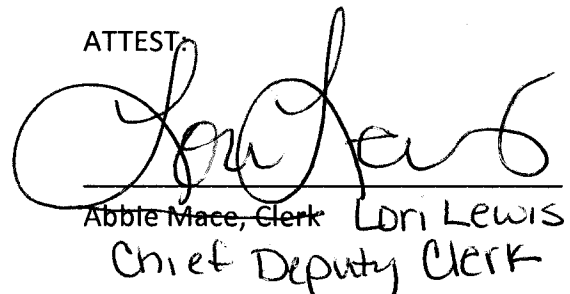 ATTEST:
Lori Lewis
Abbie Mace, Clerk Lori Lewis
Chief Deputy Clerk